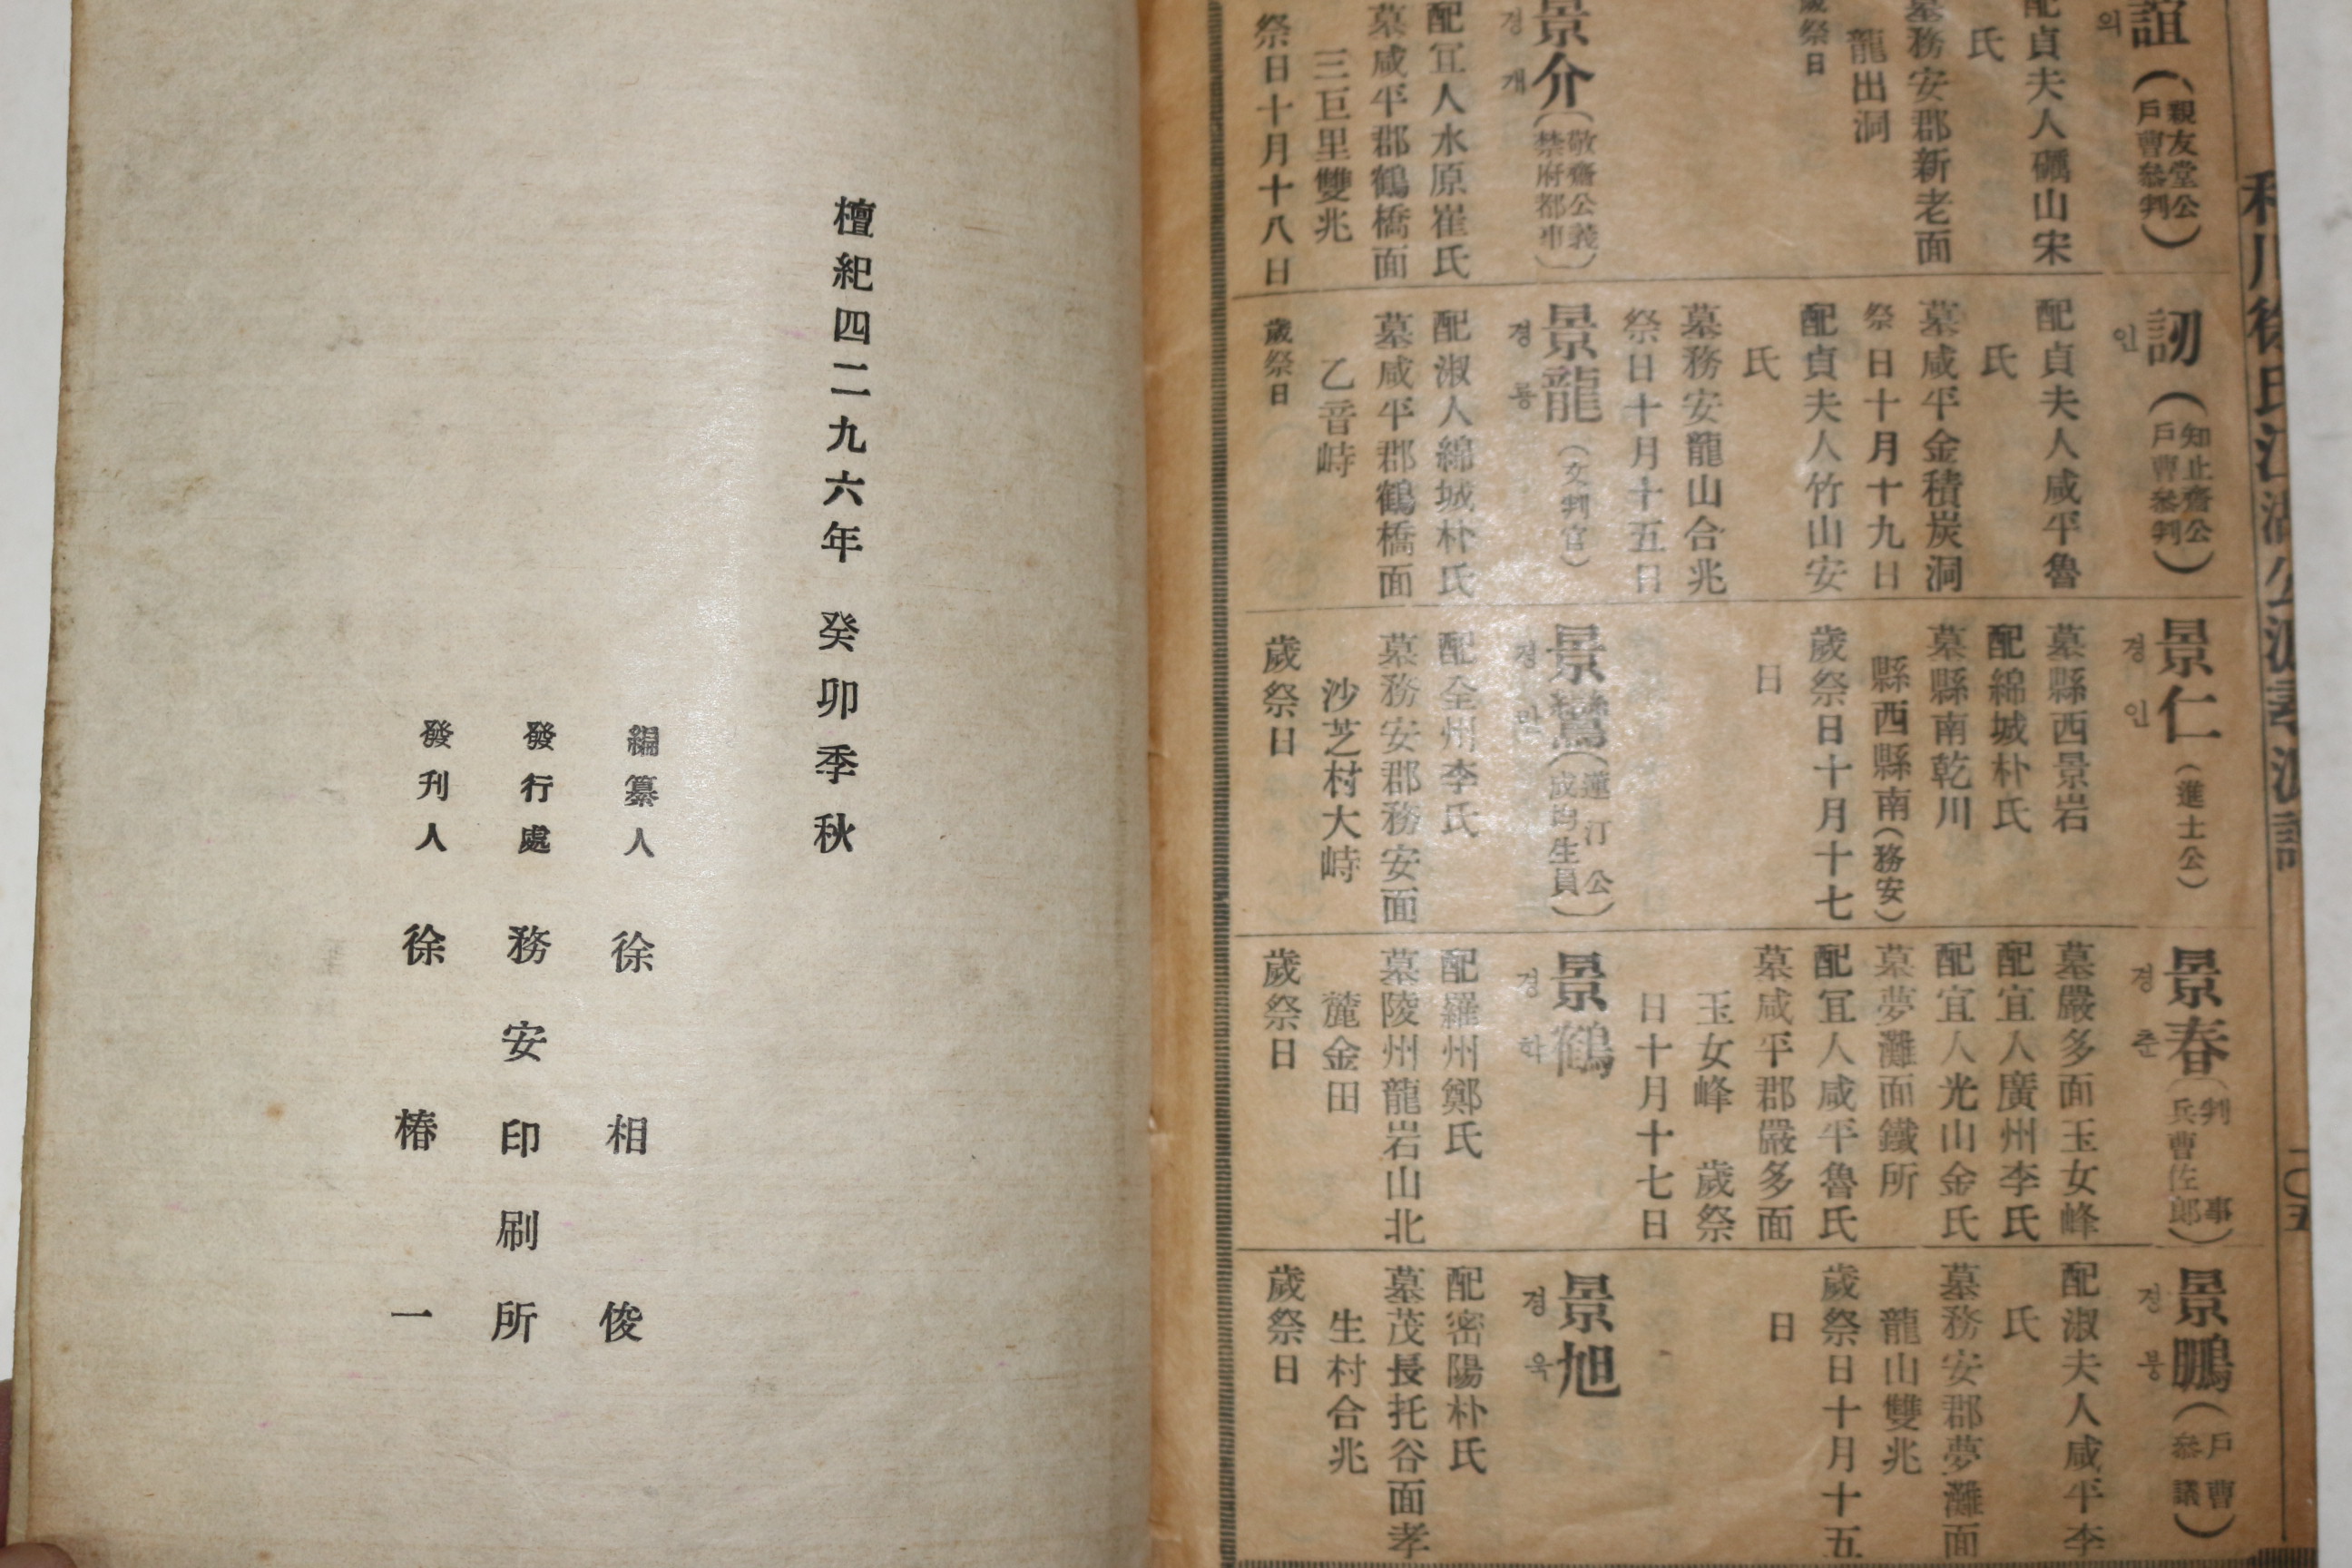 利川徐氏江湖公派尋源譜
一〇五
誼(親友堂公 戶曹參判)
의
配貞夫人礪山宋
氏
墓務安郡新老面
龍出洞
歲祭日
景介(敬齋公義禁府都事)
경개
配宜人水原崔氏
墓咸平郡鶴橋面
三巨里雙兆
祭日十月十八日
訒(知止齋公 戶曹參判)
인
配貞夫人咸平魯
氏
墓咸平金積炭洞
祭日十月十九日
配貞夫人竹山安
氏
墓務安龍山合兆
祭日十月十五日
景龍(文判官)
경룡
配淑人綿城朴氏
墓咸平郡鶴橋面
乙音峙
歲祭日
景仁(進士公)
경인
墓縣西景岩
配綿城朴氏
墓縣南乾川
縣西縣南(務安)
歲祭日十月十七
日
景鸞(蓮汀公 成均生員)
配全州李氏
墓務安郡務安面
沙芝村大峙
歲祭日
景春(判事 兵曹佐郎)
경춘
墓嚴多面玉女峰
配宜人廣州李氏
配宜人光山金氏
墓夢灘面鐵所
配宜人咸平魯氏
墓咸平郡嚴多面
玉女峰 歲祭
日十月十七日
景鶴
경학
配羅州鄭氏
墓陵州龍岩山北
麓金田
歲祭日
景鵬(戶曹參議)
경붕
配淑夫人咸平李
氏
墓務安郡夢灘面
龍山雙兆
歲祭日十月十五
日
景旭
경욱
配密陽朴氏
墓茂長托谷面孝
生村合兆
歲祭日
檀紀四二九六年 癸卯季秋
編纂人 徐相俊
發行處 務安印刷所
發刊人 徐椿一